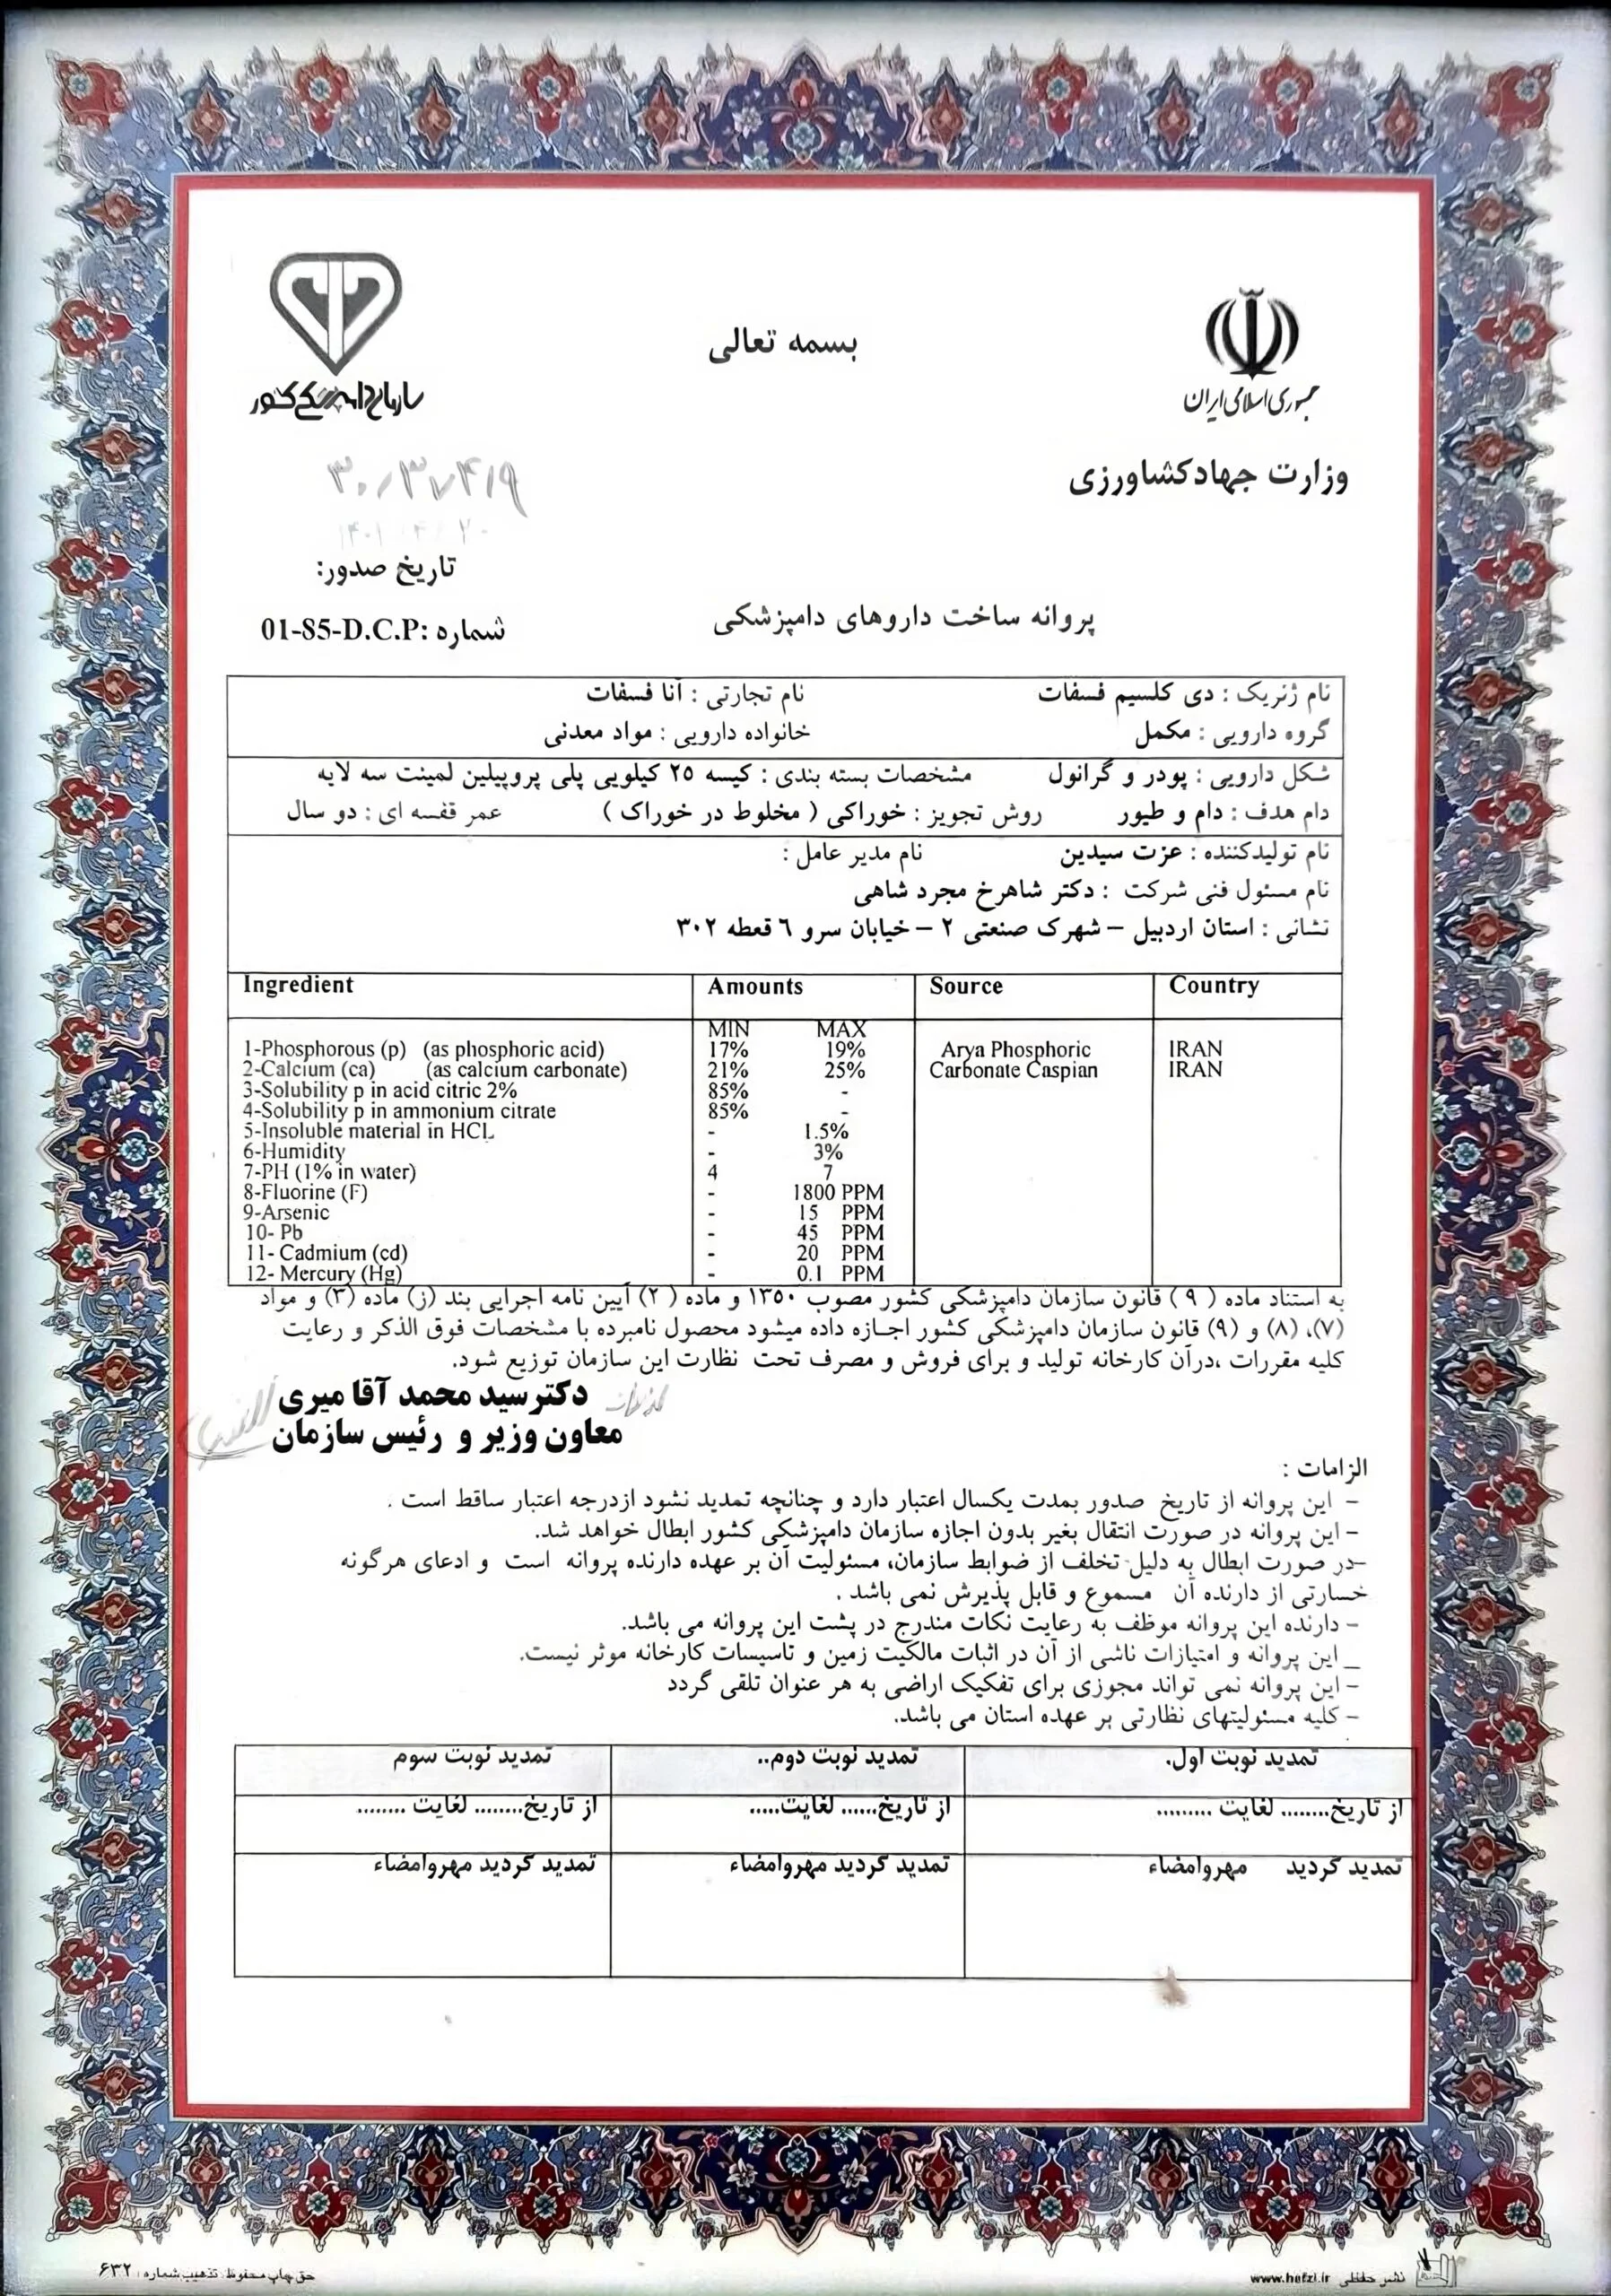 بسمه تعالی
جمهوری اسلامی ایران
سازمان دامپزشکی کشور
وزارت جهاد کشاورزی
تاریخ صدور:
شماره :01-85-D.C.P
پروانه ساخت داروهای دامپزشکی
نام ژنریک : دی کلسیم فسفات نام تجارتی : آنا فسفات
گروه دارویی : مکمل خانواده دارویی : مواد معدنی
شکل دارویی : پودر و گرانول مشخصات بسته بندی : کیسه ۲۵ کیلویی پلی پروپیلین لمینت سه لایه
دام هدف : دام و طیور روش تجویز : خوراکی ( مخلوط در خوراک ) عمر قفسه ای : دو سال
نام تولیدکننده : عزت سیدین نام مدیر عامل :
نام مسئول فنی شرکت : دکتر شاهرخ مجرد شاهی
نشانی : استان اردبیل – شهرک صنعتی ۲ – خیابان سرو ٦ قعطه ۳۰۲
Ingredient Amounts Source Country
MIN MAX
1-Phosphorous (p) (as phosphoric acid) 17% 19% Arya Phosphoric IRAN
2-Calcium (ca) (as calcium carbonate) 21% 25% Carbonate Caspian IRAN
3-Solubility p in acid citric 2% 85% -
4-Solubility p in ammonium citrate 85% -
5-Insoluble material in HCL - 1.5%
6-Humidity - 3%
7-PH (1% in water) 4 7
8-Fluorine (F) - 1800 PPM
9-Arsenic - 15 PPM
10- Pb - 45 PPM
11- Cadmium (cd) - 20 PPM
12- Mercury (Hg) - 0.1 PPM
به استناد ماده ( ۹ ) قانون سازمان دامپزشکی کشور مصوب ۱۳۵۰ و ماده ( ۲) آیین نامه اجرایی بند (ز) ماده (۳) و مواد
(۷)، (۸) و (۹) قانون سازمان دامپزشکی کشور اجازه داده میشود محصول نامبرده با مشخصات فوق الذکر و رعایت
کلیه مقررات ،درآن کارخانه تولید و برای فروش و مصرف تحت نظارت این سازمان توزیع شود.
دکترسید محمد آقا میری
معاون وزیر و رئیس سازمان
الزامات :
- این پروانه از تاریخ صدور بمدت یکسال اعتبار دارد و چنانچه تمدید نشود ازدرجه اعتبار ساقط است .
- این پروانه در صورت انتقال بغیر بدون اجازه سازمان دامپزشکی کشور ابطال خواهد شد.
-در صورت ابطال به دلیل تخلف از ضوابط سازمان، مسئولیت آن بر عهده دارنده پروانه است و ادعای هرگونه
خسارتی از دارنده آن مسموع و قابل پذیرش نمی باشد .
- دارنده این پروانه موظف به رعایت نکات مندرج در پشت این پروانه می باشد.
_ این پروانه و امتیازات ناشی از آن در اثبات مالکیت زمین و تاسیسات کارخانه موثر نیست.
- این پروانه نمی تواند مجوزی برای تفکیک اراضی به هر عنوان تلقی گردد
- کلیه مسئولیتهای نظارتی بر عهده استان می باشد.
تمدید نوبت اول. تمدید نوبت دوم.. تمدید نوبت سوم
از تاریخ........ لغایت ......... از تاریخ...... لغایت..... از تاریخ........ لغایت ........
تمدید گردید مهروامضاء تمدید گردید مهروامضاء تمدید گردید مهروامضاء
حق چاپ محفوظ تذهیب شماره : ۶۳۲
نشر حفظی www.hefzi.ir